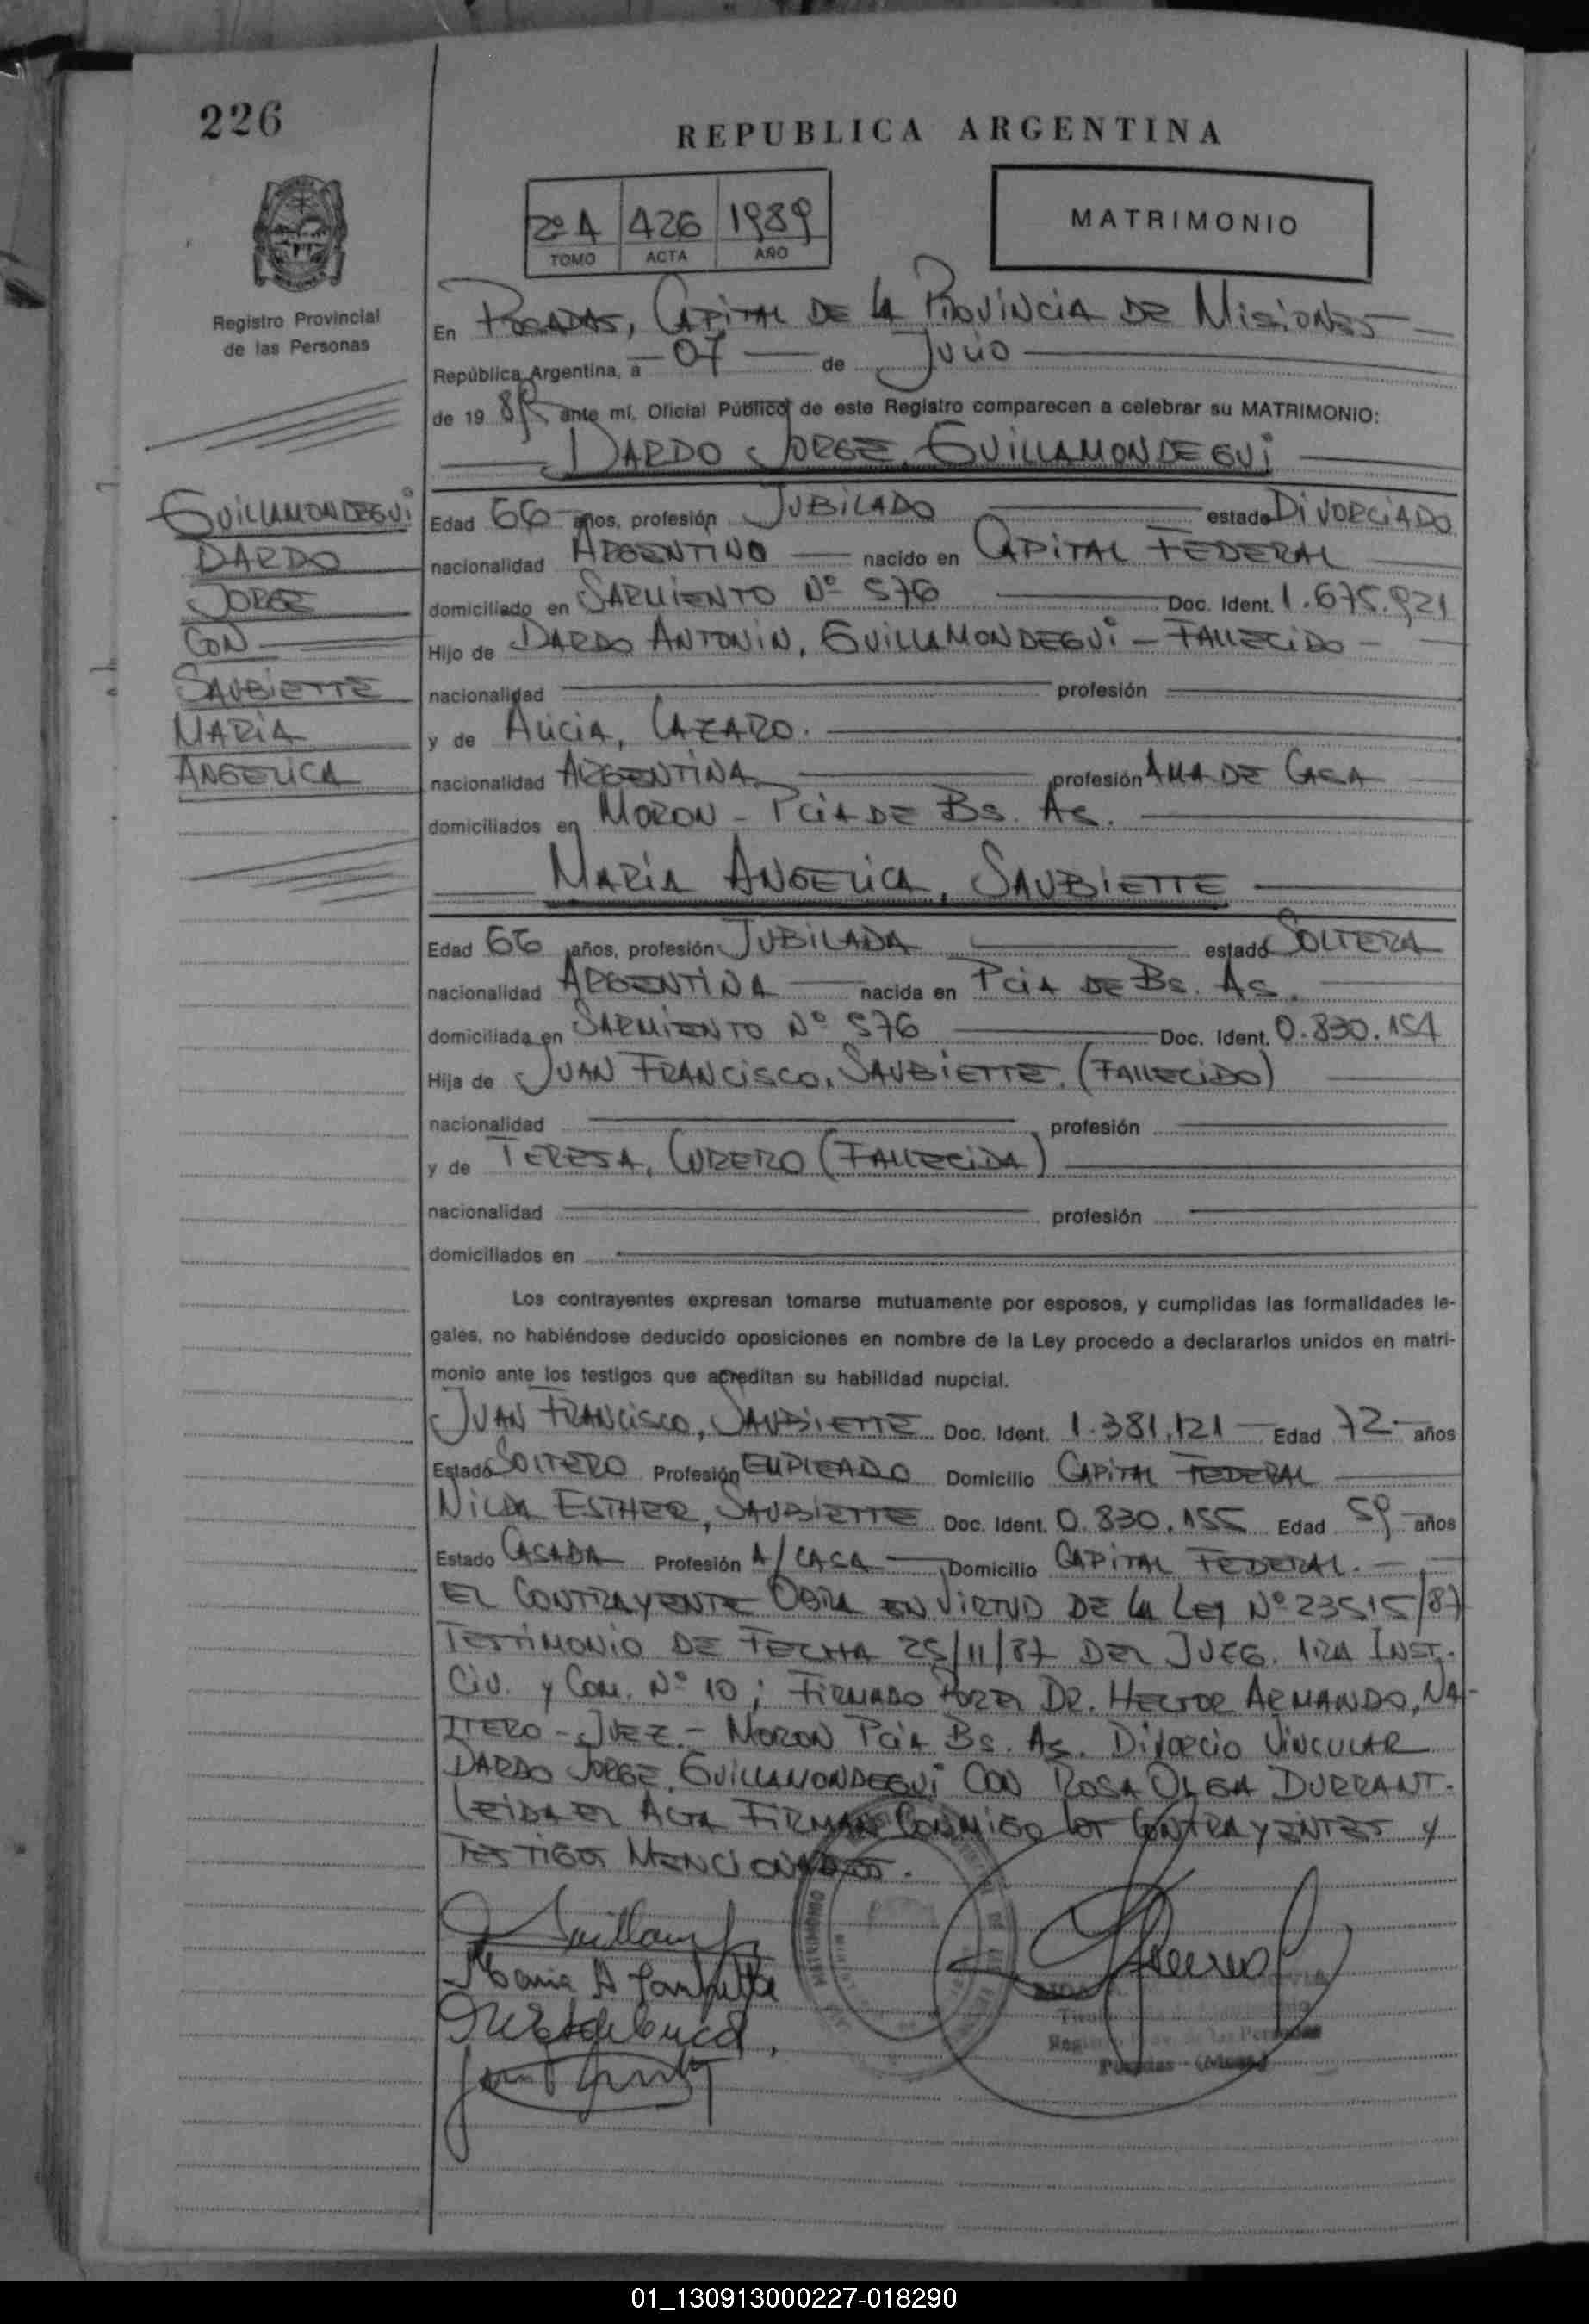 226
REPUBLICA ARGENTINA
2º A 426 1989
TOMO ACTA AÑO
MATRIMONIO
Registro Provincial
de las Personas
En POSADAS, CAPITAL DE LA PROVINCIA DE MISIONES
República Argentina, a 07 de JULIO
de 19 89 ante mí, Oficial Público de este Registro comparecen a celebrar su MATRIMONIO:
DARDO JORGE, GUILLAMONDEGUI
GUILLAMONDEGUI
DARDO
JORGE
CON
SAUBIETTE
MARIA
ANGELICA
Edad 66 años, profesión JUBILADO estado DIVORCIADO
nacionalidad ARGENTINO nacido en CAPITAL FEDERAL
domiciliado en SARMIENTO Nº 576 Doc. Ident. 1.675.921
Hijo de DARDO ANTONIN, GUILLAMONDEGUI - FALLECIDO -
nacionalidad profesión
y de ALICIA, LAZARO.
nacionalidad ARGENTINA profesión AMA DE CASA
domiciliados en MORON - PCIA DE BS. AS.
MARIA ANGELICA, SAUBIETTE
Edad 66 años, profesión JUBILADA estado SOLTERA
nacionalidad ARGENTINA nacida en PCIA DE BS. AS.
domiciliada en SARMIENTO Nº 576 Doc. Ident. 0.830.154
Hija de JUAN FRANCISCO, SAUBIETTE. (FALLECIDO)
nacionalidad profesión
y de TERESA, CURERO (FALLECIDA)
nacionalidad profesión
domiciliados en
Los contrayentes expresan tomarse mutuamente por esposos, y cumplidas las formalidades le-
gales, no habiéndose deducido oposiciones en nombre de la Ley procedo a declararlos unidos en matri-
monio ante los testigos que acreditan su habilidad nupcial.
JUAN FRANCISCO, SAUBIETTE Doc. Ident. 1.381.121 Edad 72 años
Estado SOLTERO Profesión EMPLEADO Domicilio CAPITAL FEDERAL
NILDA ESTHER, SAUBIETTE Doc. Ident. 0.830.155 Edad 59 años
Estado CASADA Profesión A/CASA Domicilio CAPITAL FEDERAL.
EL CONTRAYENTE OBRA EN VIRTUD DE LA LEY Nº 23515/87
TESTIMONIO DE FECHA 25/11/87 DEL JUEG. 1RA INST.
CIV. y COM. Nº 10; FIRMADO POR EL DR. HECTOR ARMANDO, NA-
ITERO - JUEZ - MORON PCIA BS. AS. DIVORCIO VINCULAR
DARDO JORGE, GUILLAMONDEGUI CON ROSA OLGA DURRANT.
LEIDA EL ACTA FIRMAN CONMIGO LOS CONTRAYENTES Y
TESTIGOS MENCIONADOS.
Maria A Saubiette
Posadas - (Mnes.)
01_130913000227-018290